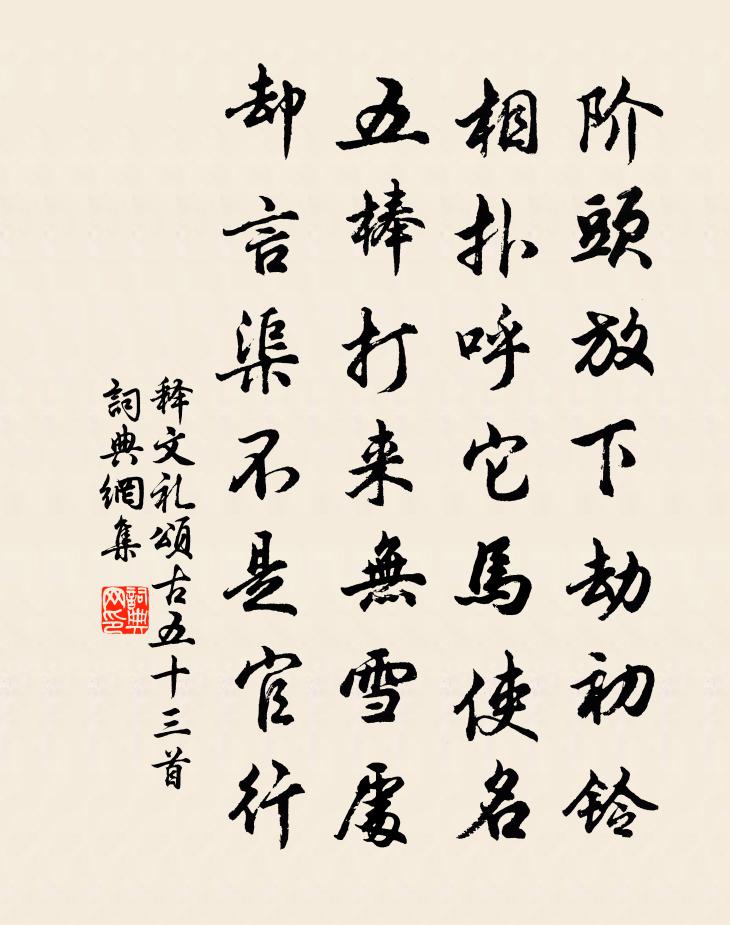 阶頭放下劫初鈴
相扑呼它馬使名
五棒打来無雪處
却言渠不是官行
释文礼頌古五十三首
詞典網集
詞典网印